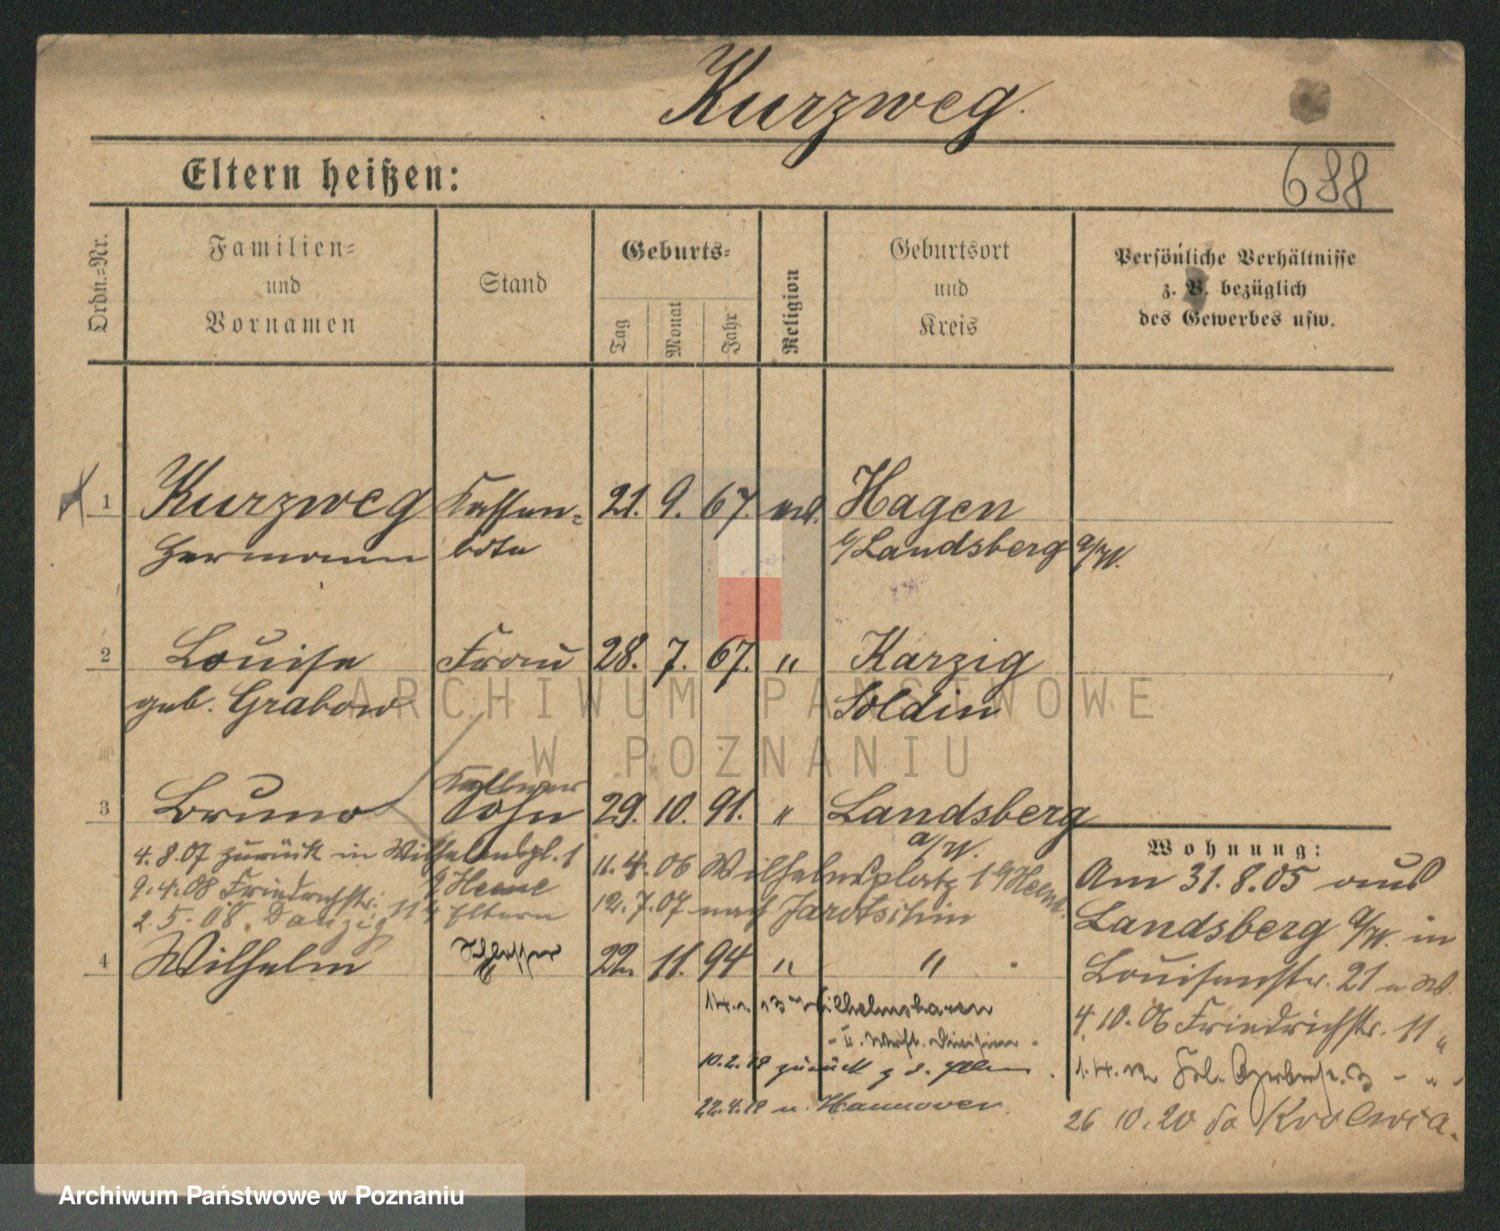 Kurzweg.
Eltern heißen:
688
Ordn.=Nr.
Familien=
und
Vornamen
Stand
Geburts=
Tag
Monat
Jahr
Religion
Geburtsort
und
Kreis
Persönliche Verhältnisse
z. B. bezüglich
des Gewerbes usw.
1 Kurzweg Kassen= 21. 9. 67. Hagen
Hermann bote b/Landsberg a/W.
2 Louise Frau 28. 7. 67. " Karzig
geb. Grabow Soldin
3 Bruno Sohn 29. 10. 91. " Landsberg
a/W.
4.8.07 zurück in Wilhelmspl. 1
9.4.08 Friedrichstr. 11 Eltern
2.5.08. Danzig
11.4.06 Wilhelmsplatz 1
12.7.07 nach Jarotschin
4 Wilhelm Schlosser 22. 11. 94 " "
Wilhelmshaven
II. Werft. Division
10.2.19 zurück z. d.
22.4.19 n. Hannover.
Wohnung:
Am 31.8.05 aus
Landsberg a/W. in
Louisenstr. 21
4.10.06 Friedrichstr. 11
26 10.20
ARCHIWUM PAŃSTWOWE
W POZNANIU
Archiwum Państwowe w Poznaniu